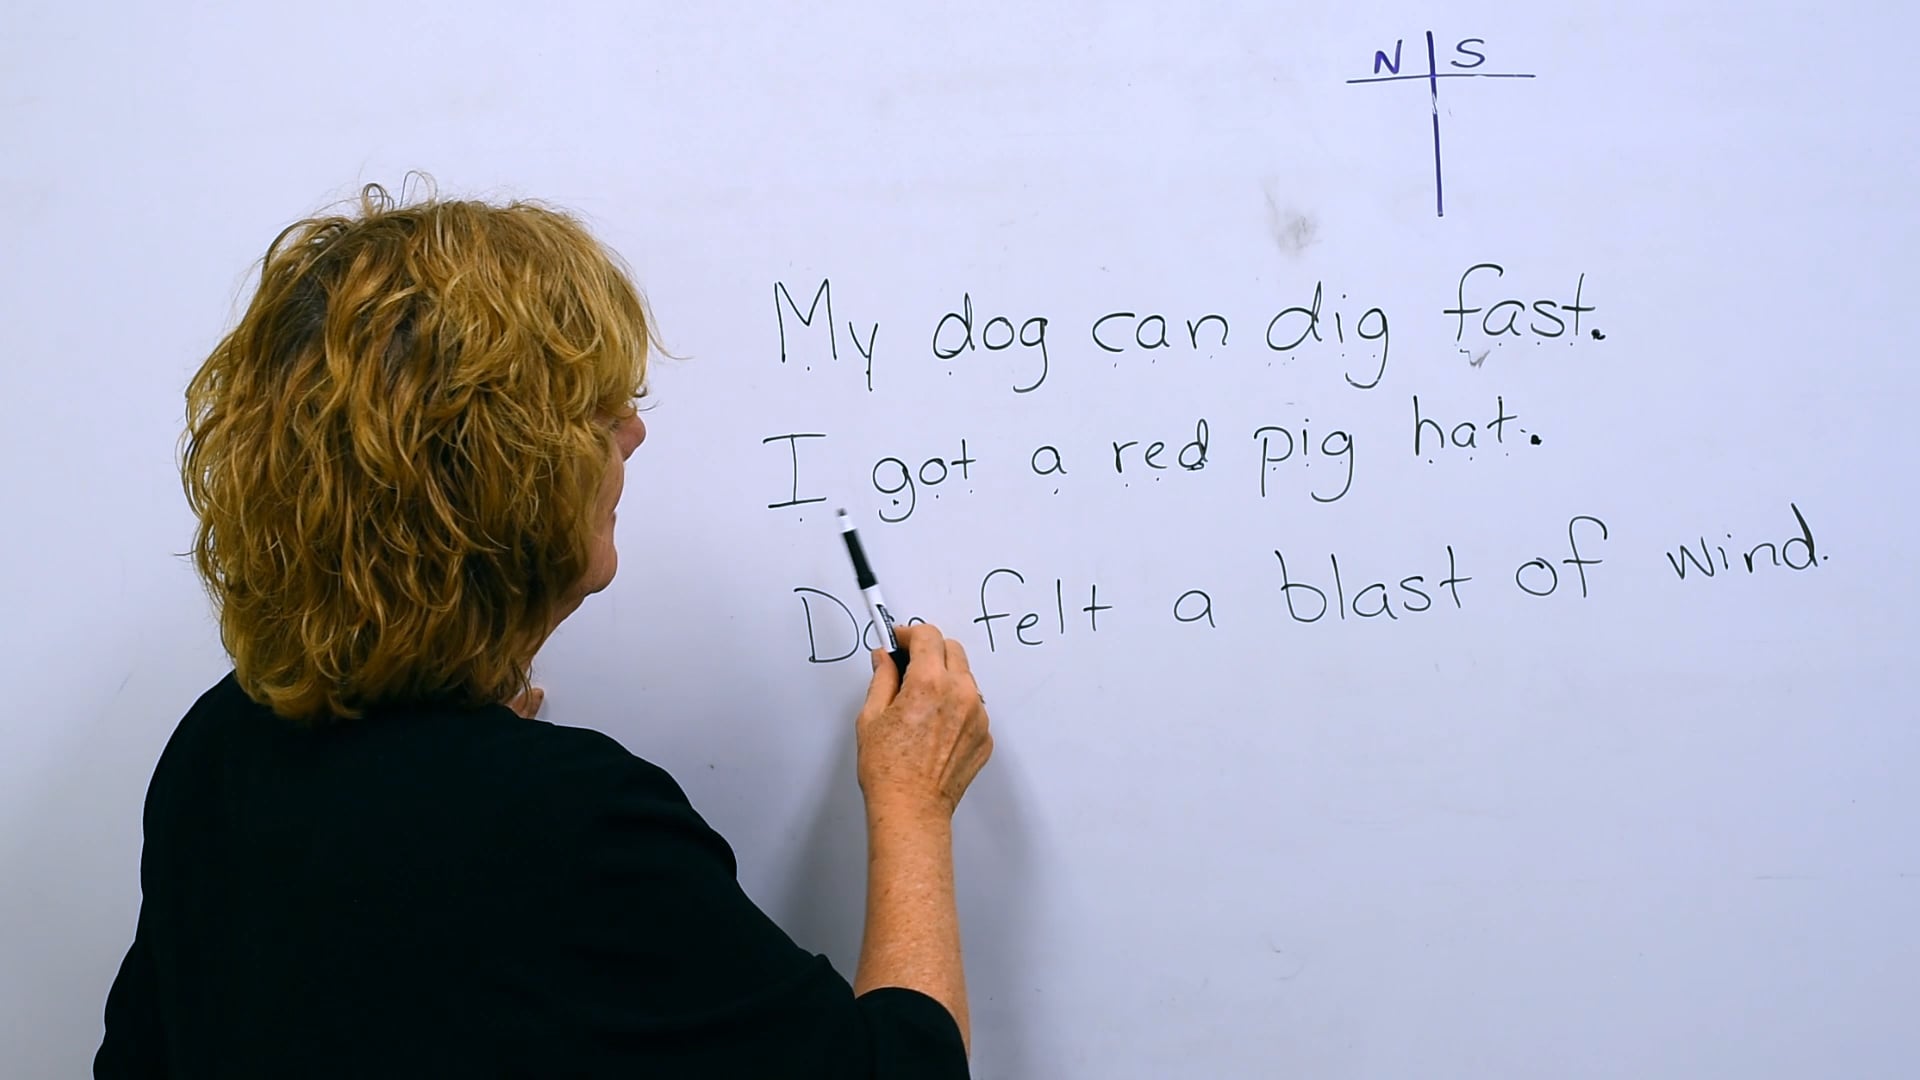 N S
My dog can dig fast.
I got a red pig hat.
felt a blast of wind.